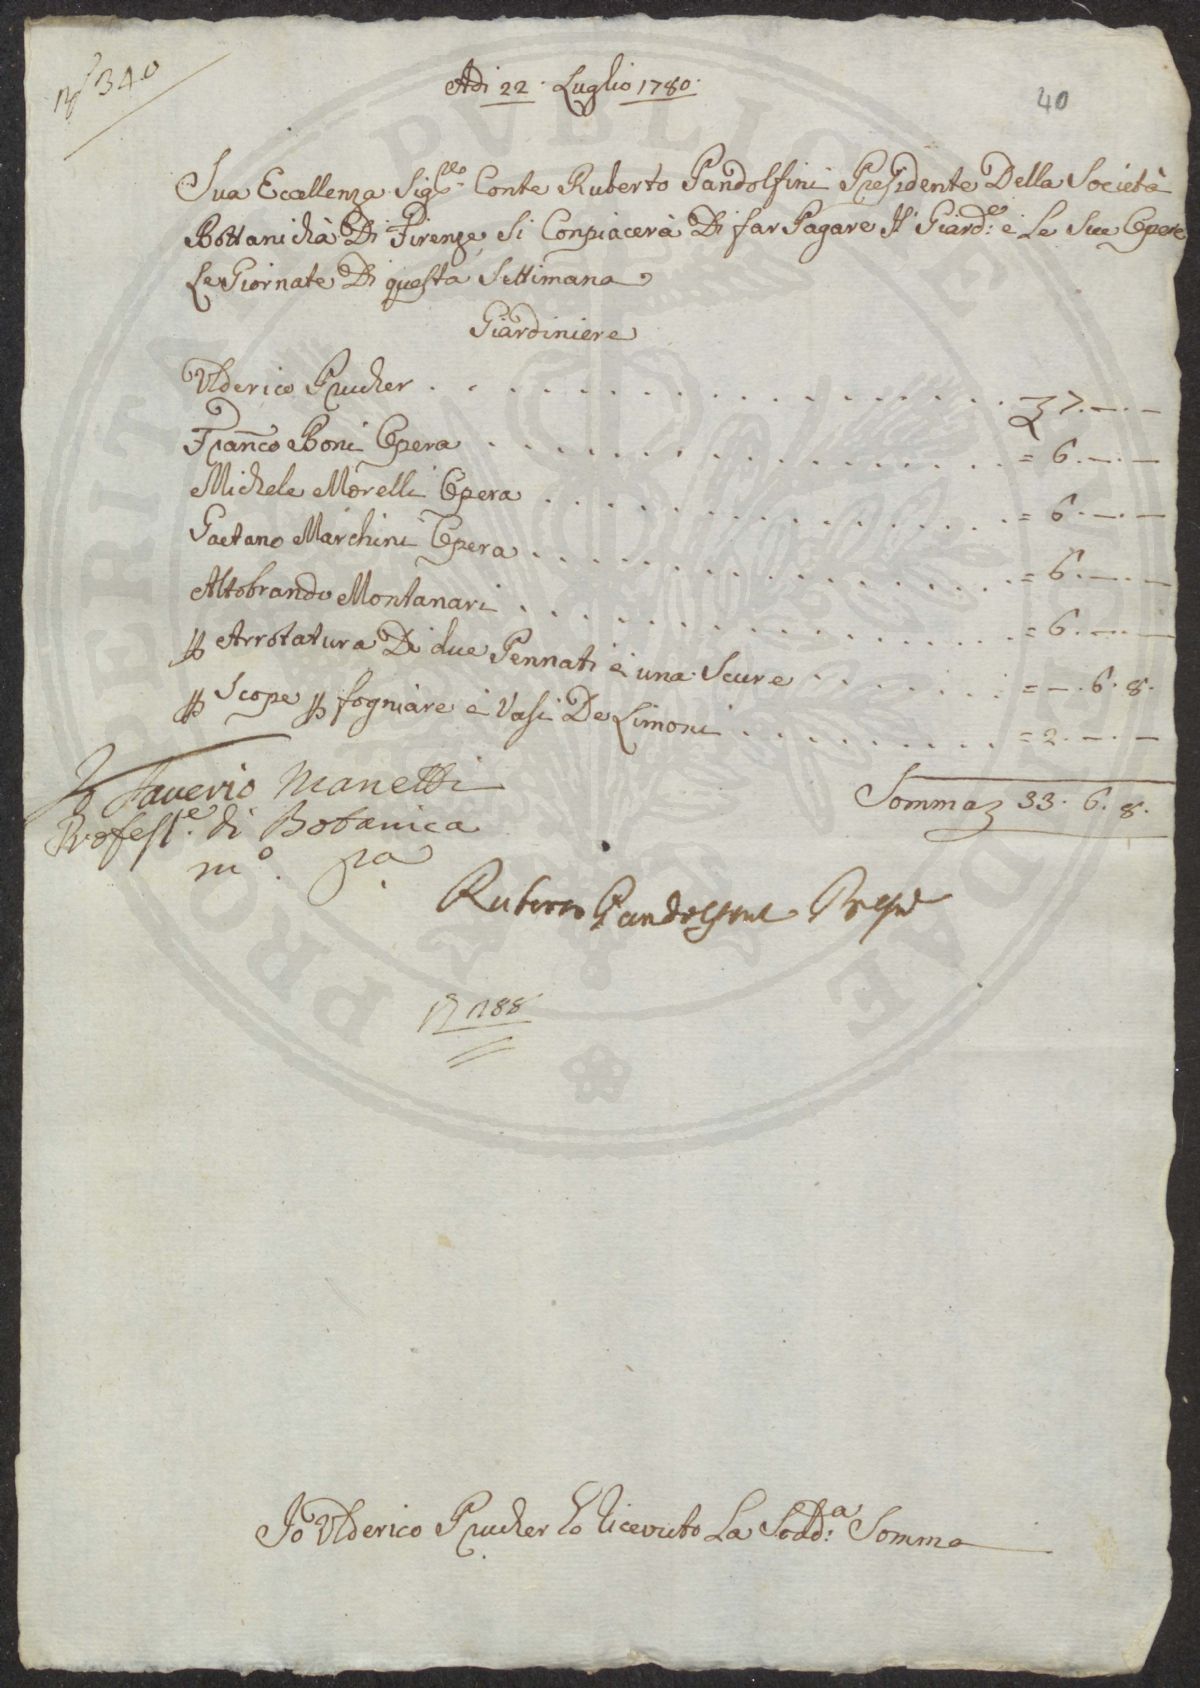 N° 340
Adi 22. Luglio 1780.
40
Sua Eccellenza Sig.re Conte Ruberto Pandolfini Presidente Della Società
Bottanicha Di Firenze Si Conpiacerà Di far Pagare Il Giard.e e Le Sue Opere
Le Giornate Di questa Settimana
Giardiniere
Ulderico Prucher . . . . . . . . . . . . £ 7.—.—
Franco Boni Opera . . . . . . . . . . . . = 6.—.—
Michele Morelli Opera . . . . . . . . . . . . = 6.—.—
Gaetano Marchini Opera . . . . . . . . . . . . = 6.—.—
Altobrando Montanari . . . . . . . . . . . . = 6.—.—
p Arrotatura Di due Pennati e una Scure . . . . . . . = —.6.8.
p Scope p fogniare e Vasi De Limoni . . . . . . . . = 2.—.—
Somma £ 33.6.8.
Io Saverio Manetti
Profess.e di Botanica
m.o pa
Ruberto Pandolfini Presid
1788
Io Ulderico Prucher ho ricevuto La Sodd.a Somma
PRO PVBLICAE PROSPERITATE